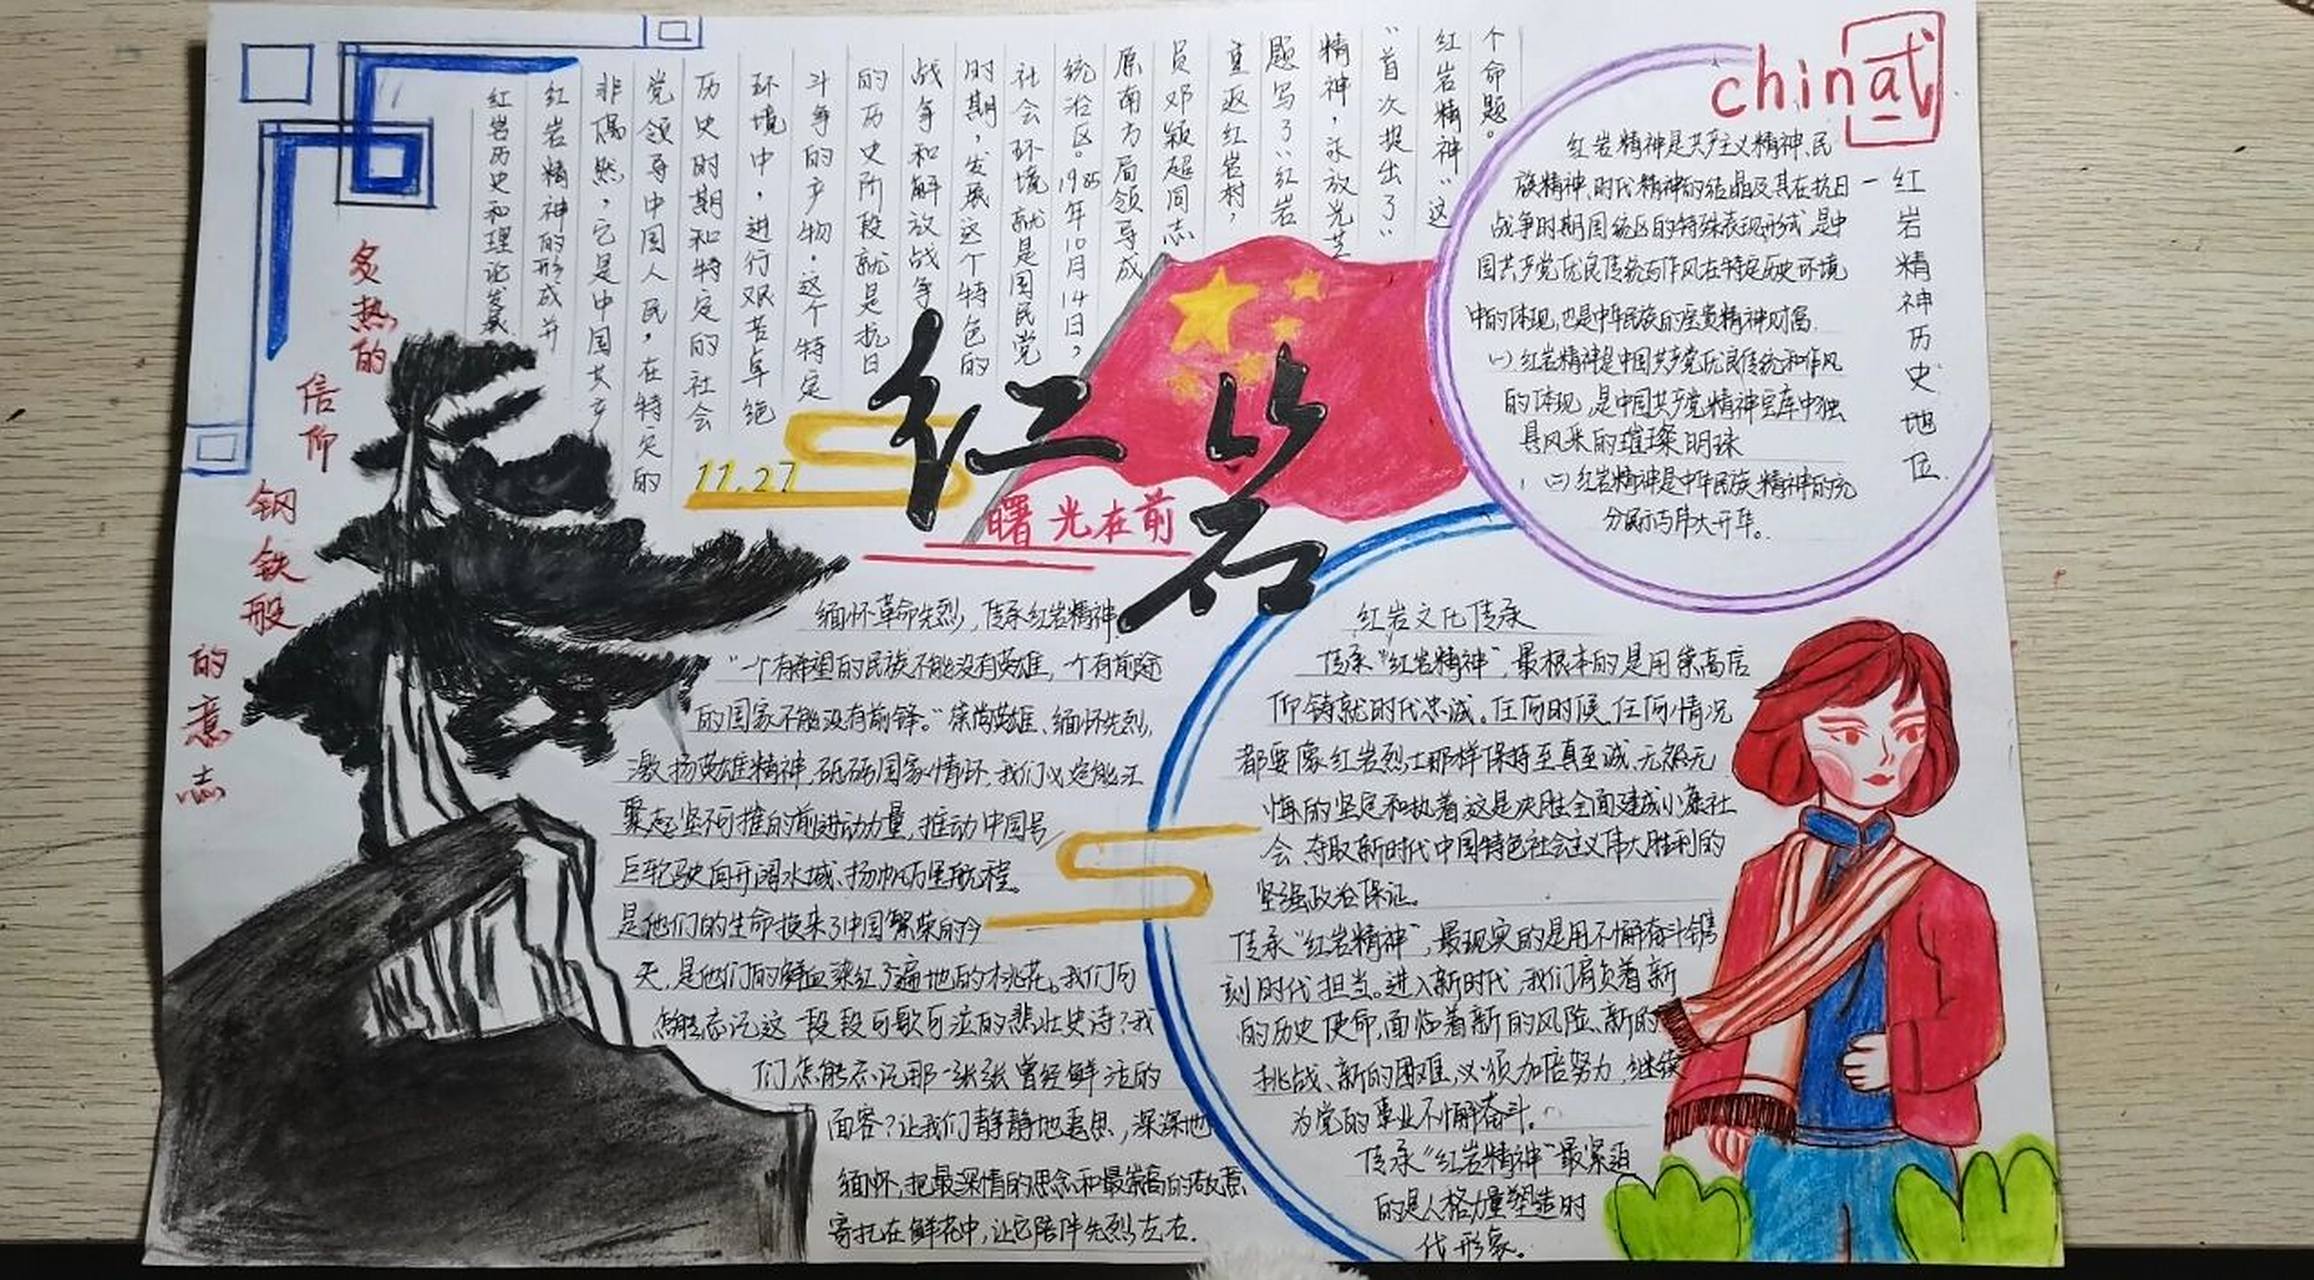 红岩
11.27
曙光在前
炙热的
信仰
钢铁般
的意志
红岩历史和理论发展
红岩精神的形成并
非偶然，它是中国共产
党领导中国人民，在特定的
历史时期和特定的社会
环境中，进行艰苦卓绝
斗争的产物。这个特定
的历史阶段就是抗日
战争和解放战争
时期，发展这个特色的
社会环境就是国民党
统治区。1985年10月14日，
原南方局领导成
员邓颖超同志
重返红岩村，
题写了“红岩
精神，永放光芒
”首次提出了“
红岩精神”这
个命题。
china式
一红岩精神历史地位
红岩精神是共产主义精神、民
族精神、时代精神的结晶及其在抗日
战争时期国统区的特殊表现形式，是中
国共产党优良传统与作风在特定历史环境
中的体现，也是中华民族的宝贵精神财富
(一)红岩精神是中国共产党优良传统和作风
的体现，是中国共产党精神宝库中独
具风采的璀璨明珠
(二)红岩精神是中华民族精神的充
分展示与伟大升华。
缅怀革命先烈，传承红岩精神
“一个有希望的民族不能没有英雄，一个有前途
的国家不能没有前锋。”崇尚英雄、缅怀先烈，
激扬英雄精神，砥砺国家情怀，我们必定能汇
聚起坚不可摧的前进动力量，推动中国号
巨轮驶向开阔水域、扬帆万里航程。
是他们的生命换来了中国繁荣的今
天，是他们的鲜血染红了遍地的桃花。我们句
怎能忘记这一段段可歌可泣的悲壮史诗？我
们怎能忘记那一张张曾经鲜活的
面容？让我们静静地追思，深深地
缅怀，把最深情的思念和最崇高的敬意
寄托在鲜花中，让它陪伴先烈左右.
红岩文化传承
传承“红岩精神”，最根本的是用崇高信
仰铸就时代忠诚。任何时候、任何情况
都要像红岩烈士那样保持至真至诚、无怨无
悔的坚定和执着这是决胜全面建成小康社
会 夺取新时代中国特色社会主义伟大胜利的
坚强政治保证。
传承“红岩精神”，最现实的是用不懈奋斗镌
刻时代担当。进入新时代，我们肩负着新
的历史使命，面临着新的风险、新的
挑战、新的困难，必须加倍努力，继续
为党的事业不懈奋斗。
传承“红岩精神”最紧迫
的是人格力量塑造时
代形象。